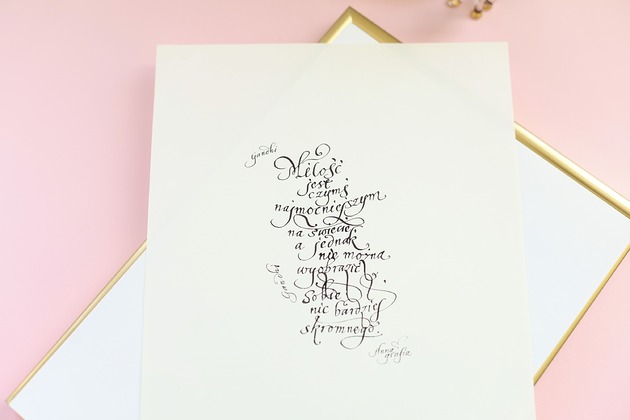 gandhi
Miłość
jest
czymś
najmocniejszym
na świecie
a jednak
nie można
wyobrazić
Gandhi
Sobie
nic bardziej
skromnego.
Anna
grafia